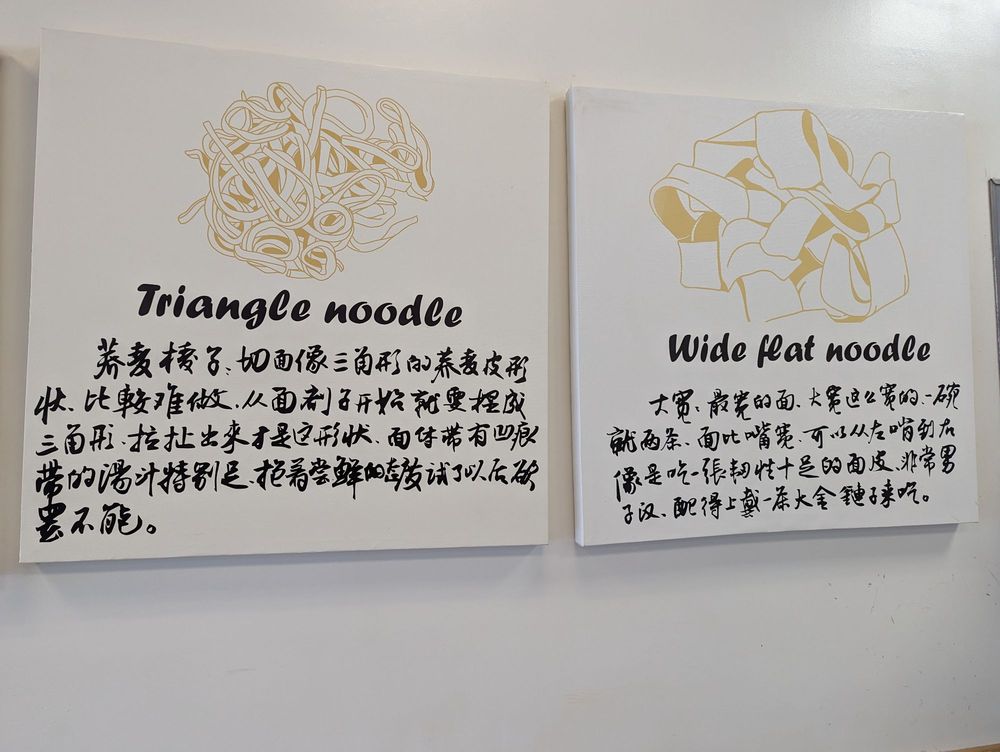 Triangle noodle
荞麦棱子、切面像三角形的荞麦皮形
状、比較难做、从面剂子开始就要捏成
三角形、拉扯出来才是这形状、面体带有凹痕
带的湯汁特别足、抱着尝鲜的态度试了以后欲
罢不能。
Wide flat noodle
大宽、最宽的面、大宽这么宽的、一碗
就两条、面比嘴宽、可以从左啃到右
像是吃一張韧性十足的面皮、非常男
子汉、配得上戴一条大金鏈子来吃。